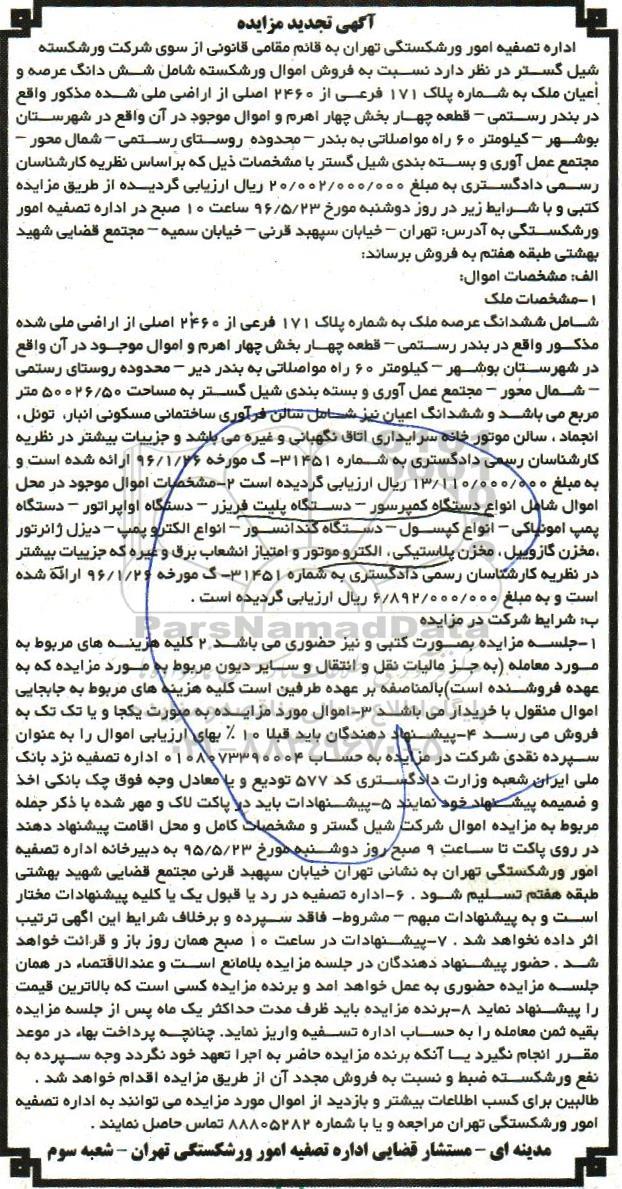 آگهی تجدید مزایده
اداره تصفیه امور ورشکستگی تهران به قائم مقامی قانونی از سوی شرکت ورشکسته
شیل گستر در نظر دارد نسبت به فروش اموال ورشکسته شامل شش دانگ عرصه و
أعیان ملک به شماره پلاک ۱۷۱ فرعی از ۲۴۶۰ اصلی از اراضی ملی شده مذکور واقع
در بندر رستمی – قطعه چهار بخش چهار اهرم و اموال موجود در آن واقع در شهرستان
بوشهر – کیلومتر ۶۰ راه مواصلاتی به بندر – محدوده روستای رستمی – شمال محور –
مجتمع عمل آوری و بسته بندی شیل گستر با مشخصات ذیل که براساس نظریه کارشناسان
رسمی دادگستری به مبلغ ۲۰/۰۰۲/۰۰۰/۰۰۰ ریال ارزیابی گردیده از طریق مزایده
کتبی و با شرایط زیر در روز دوشنبه مورخ ۹۶/۵/۲۳ ساعت ۱۰ صبح در اداره تصفیه امور
ورشکستگی به آدرس: تهران – خیابان سپهبد قرنی – خیابان سمیه – مجتمع قضایی شهید
بهشتی طبقه هفتم به فروش برساند:
الف: مشخصات اموال:
۱-مشخصات ملک
شامل ششدانگ عرصه ملک به شماره پلاک ۱۷۱ فرعی از ۲۴۶۰ اصلی از اراضی ملی شده
مذکور واقع در بندر رستمی – قطعه چهار بخش چهار اهرم و اموال موجود در آن واقع
در شهرستان بوشهر – کیلومتر ۶۰ راه مواصلاتی به بندر دیر – محدوده روستای رستمی
– شمال محور – مجتمع عمل آوری و بسته بندی شیل گستر به مساحت ۵۰۰۲۶/۵۰ متر
مربع می باشد و ششدانگ اعیان نیز شامل سالن فرآوری ساختمانی مسکونی انبار، تونل ،
انجماد ، سالن موتور خانه سرایداری اتاق نگهبانی و غیره می باشد و جزییات بیشتر در نظریه
کارشناسان رسمی دادگستری به شماره ۳۱۴۵۱– گ مورخه ۹۶/۱/۲۶ ارائه شده است و
به مبلغ ۱۳/۱۱۰/۰۰۰/۰۰۰ ریال ارزیابی گردیده است ۲-مشخصات اموال موجود در محل
اموال شامل انواع دستگاه کمپرسور – دستگاه پلیت فریزر – دستگاه اواپراتور – دستگاه
پمپ امونیاکی – انواع کپسول – دستگاه کندانسور – انواع الکترو پمپ – دیزل ژانرتور
،مخزن گازوییل ، مخزن پلاستیکی ، الکترو موتور و امتیاز انشعاب برق و غیره که جزییات بیشتر
در نظریه کارشناسان رسمی دادگستری به شماره ۳۱۴۵۱– گ مورخه ۹۶/۱/۲۶ ارائه شده
است و به مبلغ ۶/۸۹۲/۰۰۰/۰۰۰ ریال ارزیابی گردیده است .
ب: شرایط شرکت در مزایده
۱-جلسه مزایده بصورت کتبی و نیز حضوری می باشد ۲ کلیه هزینه های مربوط به
مورد معامله (به جز مالیات نقل و انتقال و سایر دیون مربوط به مورد مزایده که به
عهده فروشنده است)بالمناصفه بر عهده طرفین است کلیه هزینه های مربوط به جابجایی
اموال منقول با خریدار می باشد ۳-اموال مورد مزایده به صورت یکجا و یا تک تک به
فروش می رسد ۴-پیشنهاد دهندگان باید قبلا ۱۰ ٪ بهای ارزیابی اموال را به عنوان
سپرده نقدی شرکت در مزایده به حساب ۰۱۰۸۰۷۳۳۹۰۰۰۴ اداره تصفیه نزد بانک
ملی ایران شعبه وزارت دادگستری کد ۵۷۷ تودیع و یا معادل وجه فوق چک بانکی اخذ
و ضمیمه پیشنهاد خود نمایند ۵-پیشنهادات باید در پاکت لاک و مهر شده با ذکر جمله
مربوط به مزایده اموال شرکت شیل گستر و مشخصات کامل و محل اقامت پیشنهاد دهند
در روی پاکت تا ساعت ۹ صبح روز دوشنبه مورخ ۹۵/۵/۲۳ به دبیرخانه اداره تصفیه
امور ورشکستگی تهران به نشانی تهران خیابان سپهبد قرنی مجتمع قضایی شهید بهشتی
طبقه هفتم تسلیم شود . ۶-اداره تصفیه در رد یا قبول یک یا کلیه پیشنهادات مختار
است و به پیشنهادات مبهم – مشروط- فاقد سپرده و برخلاف شرایط این اگهی ترتیب
اثر داده نخواهد شد . ۷-پیشنهادات در ساعت ۱۰ صبح همان روز باز و قرائت خواهد
شد . حضور پیشنهاد دهندگان در جلسه مزایده بلامانع است و عندالاقتضاء در همان
جلسه مزایده حضوری به عمل خواهد امد و برنده مزایده کسی است که بالاترین قیمت
را پیشنهاد نماید ۸-برنده مزایده باید ظرف مدت حداکثر یک ماه پس از جلسه مزایده
بقیه ثمن معامله را به حساب اداره تسفیه واریز نماید. چنانچه پرداخت بهاء در موعد
مقرر انجام نگیرد یا آنکه برنده مزایده حاضر به اجرا تعهد خود نگردد وجه سپرده به
نفع ورشکسته ضبط و نسبت به فروش مجدد آن از طریق مزایده اقدام خواهد شد .
طالبین برای کسب اطلاعات بیشتر و بازدید از اموال مورد مزایده می توانند به اداره تصفیه
امور ورشکستگی تهران مراجعه و یا با شماره ۸۸۸۰۵۲۸۲ تماس حاصل نمایند .
مدینه ای – مستشار قضایی اداره تصفیه امور ورشکستگی تهران – شعبه سوم
ParsNamadData
۰۲۱-۸۸۳۴۹۶۷۰-۵